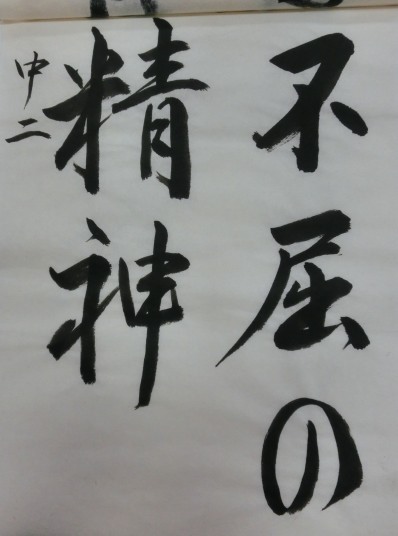 不屈の
精神
中二